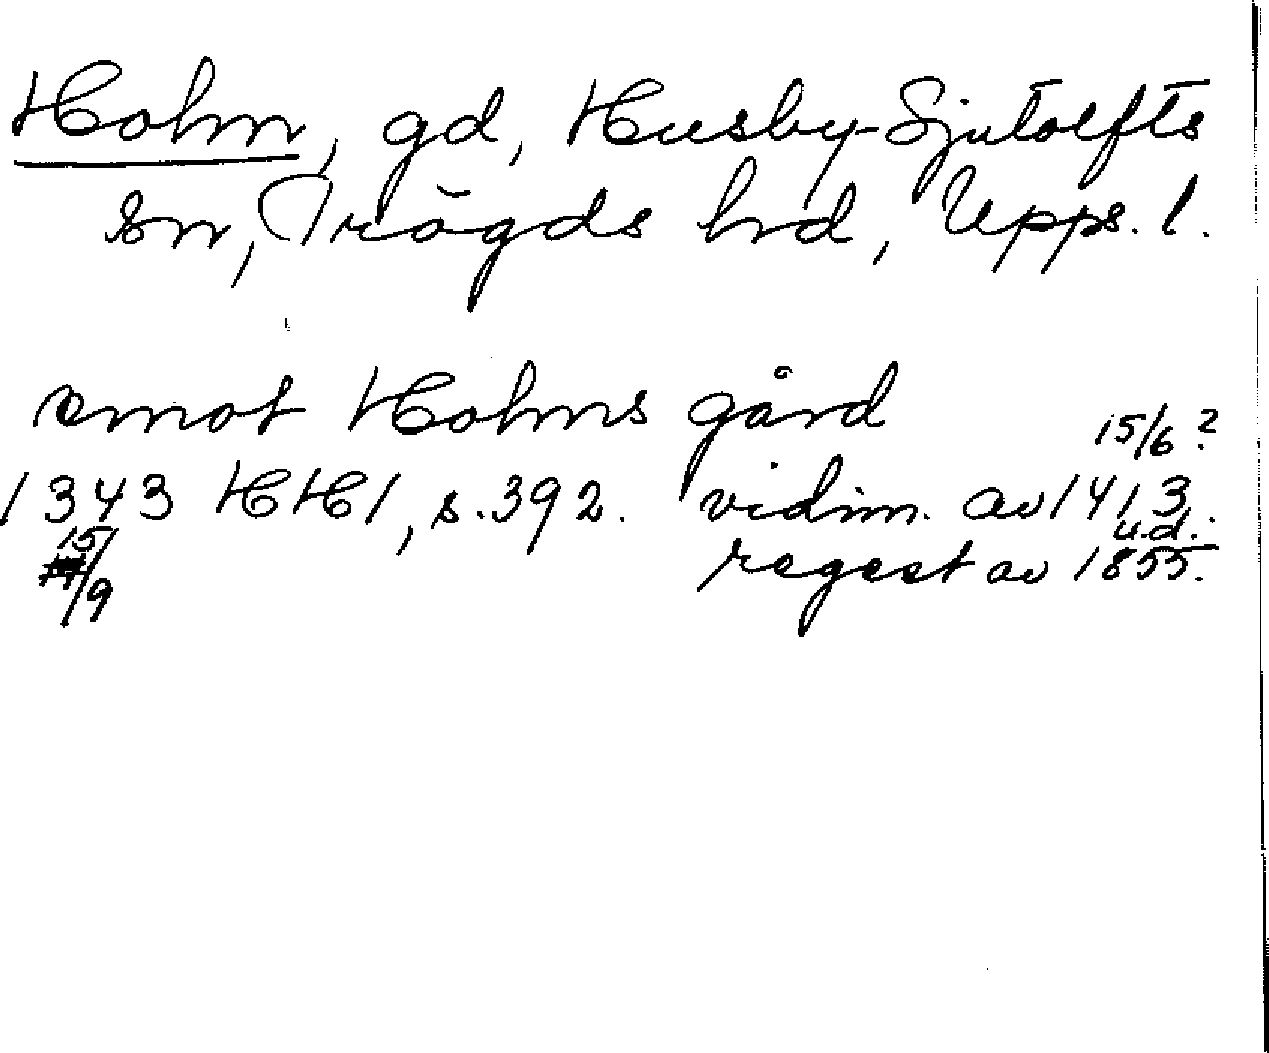 Holm, gd, Husby-Sjutolfts
sn, Trögds hd, Upps. l.
emot Holms gård
15/6 ?
1343 HH1, s. 392. vidim. av 1413
15/9 u.d.
regest av 1855.